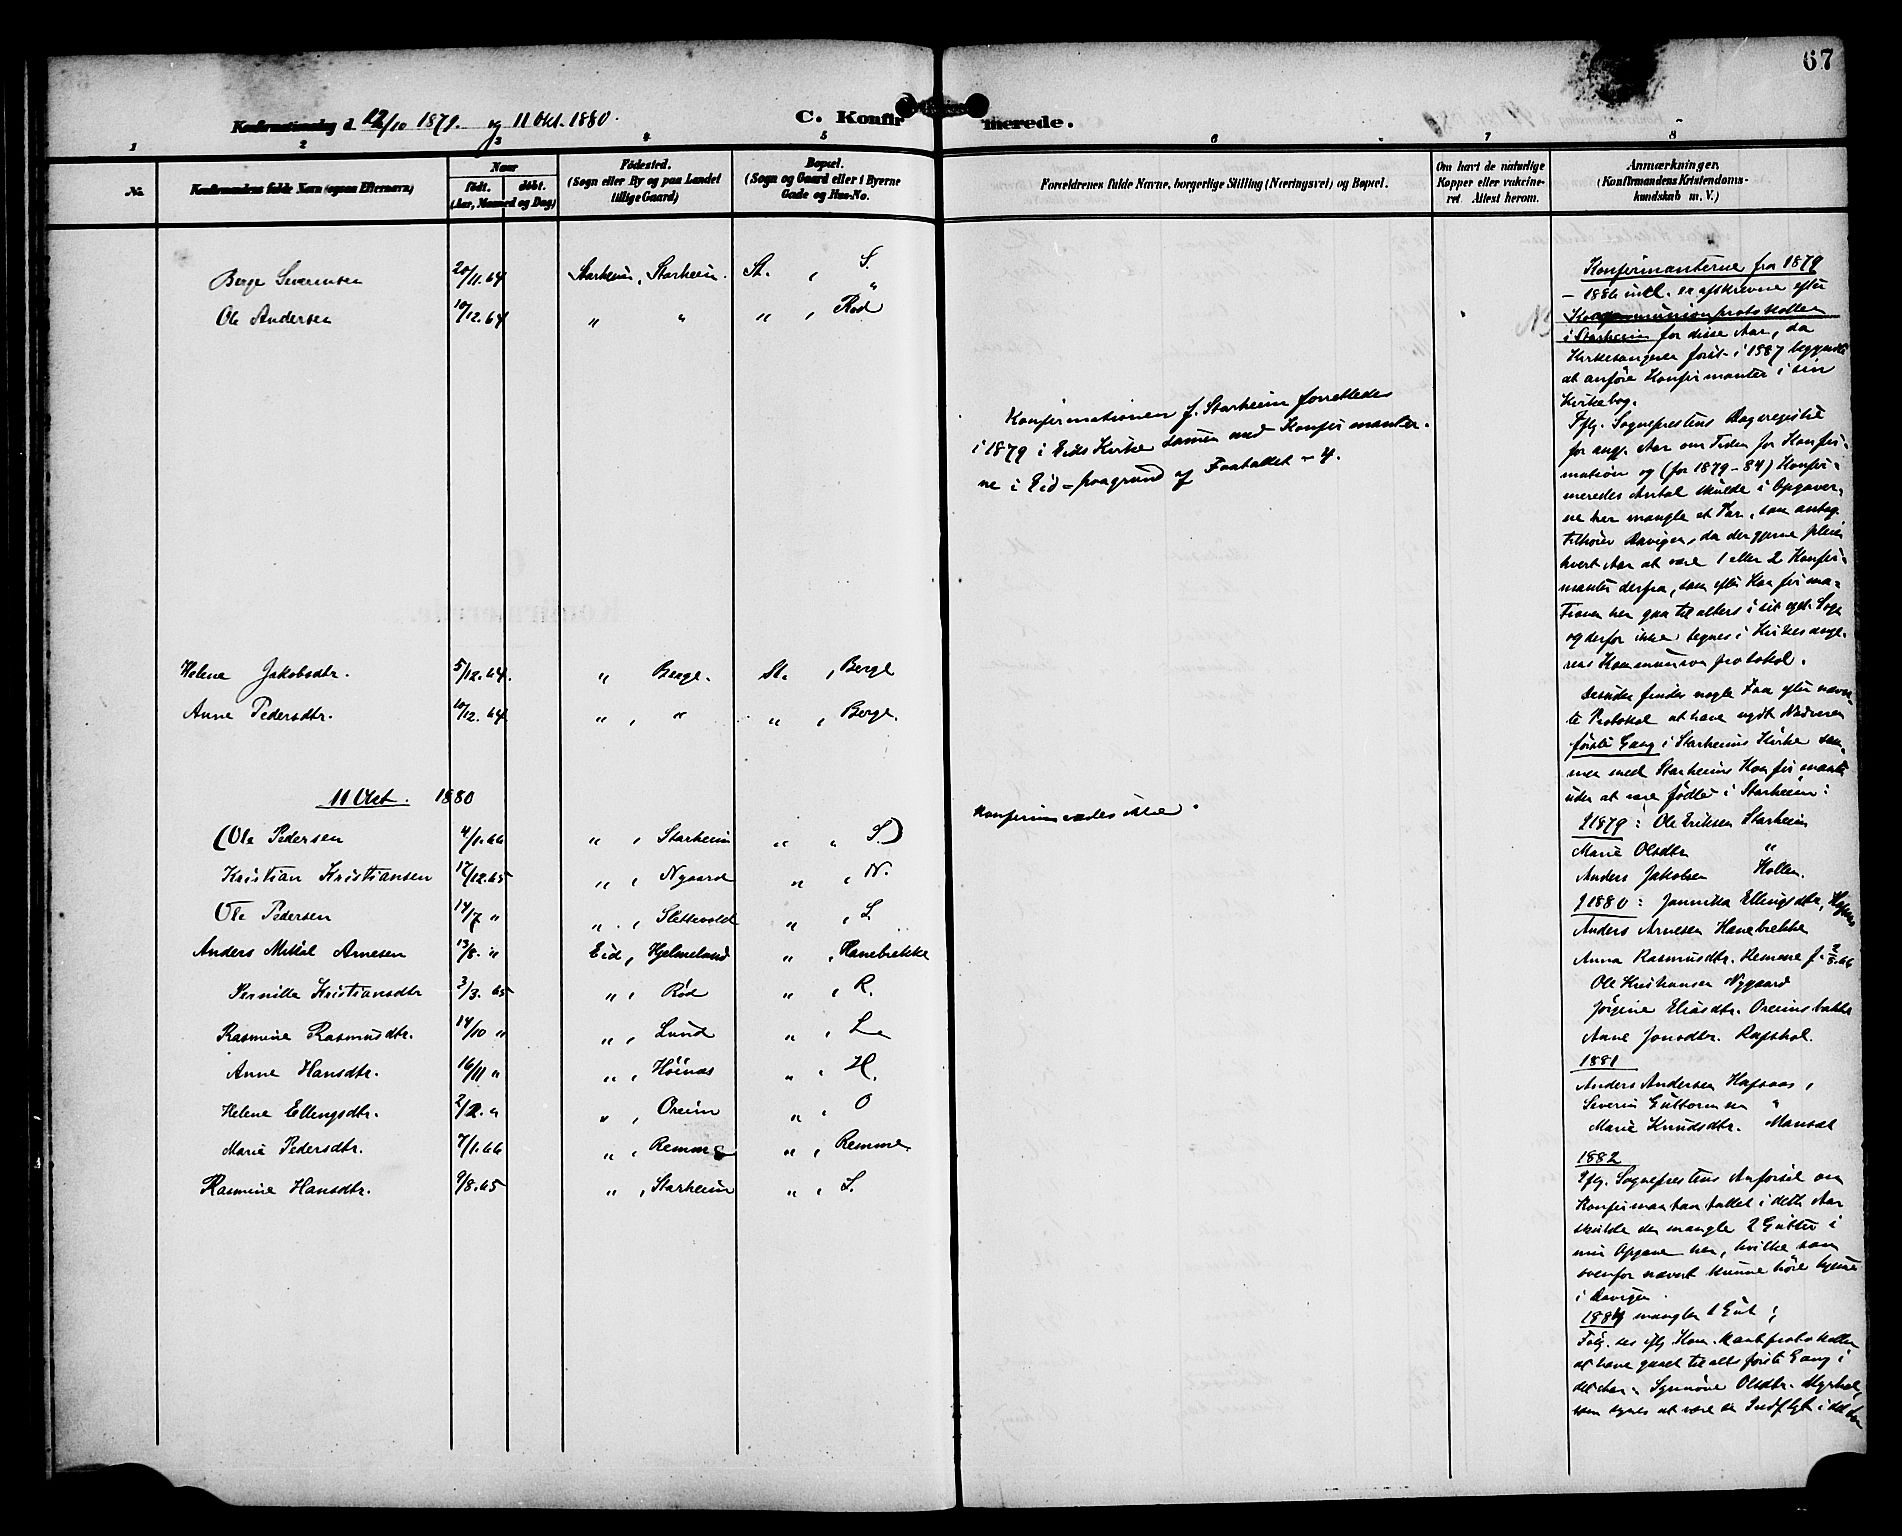 67
Konfirmationsdag d. 12/10 1879. og 11 Okt. 1880.
C. Konfirmerede.
1 2 3 4 5 6 7 8
No.
Konfirmandens fulde Navn (ogsaa Efternavn)
Naar
født. døbt.
(Aar, Maaned og Dag)
Fødested.
(Sogn eller By og paa Landet
tillige Gaard)
Bopæl.
(Sogn og Gaard eller i Byerne
Gade og Hus-No.
Forældrenes fulde Navne, borgerlige Stilling (Næringsvei) og Bopæl.
Om havt de naturlige
Kopper eller vakcine-
ret Attest herom.
Anmærkninger.
(Konfirmandens Kristendoms-
kundskab m. V.)
Berge Severinsen 20/11.64 Starheim, Starheim. St. , S.
Ole Andersen 10/12.64 " " " , Rød
Helene Jakobsdtr. 5/12.64. " Berge. St. , Berge
Anne Pedersdtr. 10/12.64 " , " " , Berge.
11 Okt. 1880
(Ole Pedersen 4/1.66 " , Starheim " , S.)
Kristian Kristiansen 17/12.65 " , Nygaard " , N.
Ole Pedersen 14/7 " " , Slettevold " , S.
Anders Mikal Arnesen 13/8. " Eid, Hjelmeland " , Hanebrekke
Pernille Kristiansdtr 3/3. 65 " , Rød " , R.
Rasmine Rasmusdtr. 14/10 " " , Lund " , L.
Anne Hansdtr. 16/11 " " , Höinæs " , H.
Helene Ellingsdtr. 2/2. " " , Oreim " , O
Marie Pedersdtr. 7/1.66 " , Remme " , Remme.
Rasmine Hansdtr. 9/8.65 " , Starheim " , S.
Konfirmationen f. Starheim forrettedes
i 1879 i Eids Kirke sammen med Konfirmanter-
ne i Eid - paagrund af Faatallet - 4.
Konfirmeredes ikke.
Konfirmanterne fra 1879
- 1886 incl. er afskrevne efter
Kommunionprotokollen
i Starheim for disse Aar, da
Kirkesangeren först i 1887 begyndte
at anføre Konfirmanter i sin
Kirkebog.
Ifg. Sogneprestens Dagregister
for ang. Aar om Tiden for Konfir-
mation og (for 1879-84) Konfir-
meredes Antal skulde i Opgaver-
ne her mangle et Par, som antag.
tilhører Davigen, da der gjerne pleier
hvert Aar at være 1 eller 2 Konfir-
manter derfra, som efter Konfirma-
tionen her gaa til alters i sit eget Sogn
og derfor ikke tegnes i Kirkesange-
rens Kommunionprotokol.
Desuden findes nogle Faa efter nævn-
te Protokol at have nydt Nadveren
første Gang i Starheims Kirke sam-
men med Starheims Konfirmanter
uden at være födte i Starheim:
I 1879: Ole Eriksen Starheim
Marie Olsdtr "
Anders Jakobsen Hollen.
I 1880: Jannikka Ellingsdtr,
Anders Arnesen Hanebrekke
Anna Rasmusdtr. Remme f. 2/3.66
Ole Kristiansen Nygaard
Jørgine Eliasdtr. Oreimsbakke
Anne Jonsdtr. Rafshol.
1881
Anders Andersen Hafsaas,
Severin Guttormsen "
Marie Knudsdtr. Mansæt
1882
Ifg. Sogneprestens Anførsel om
Konfirmantantallet i dette Aar
skulde der mangle 2 Gutter i
min Opgave her, hvilke som
ovenfor nævnt kunne höre hjemme
i Davigen.
1884 mangler 1 Gut;
Følg. ses ifg Kom. protokollen
at have gaaet til alters förste Gang i
det Aar - Synnöve Olsdtr. Myrhol,
som synes at være en Indflyt i det